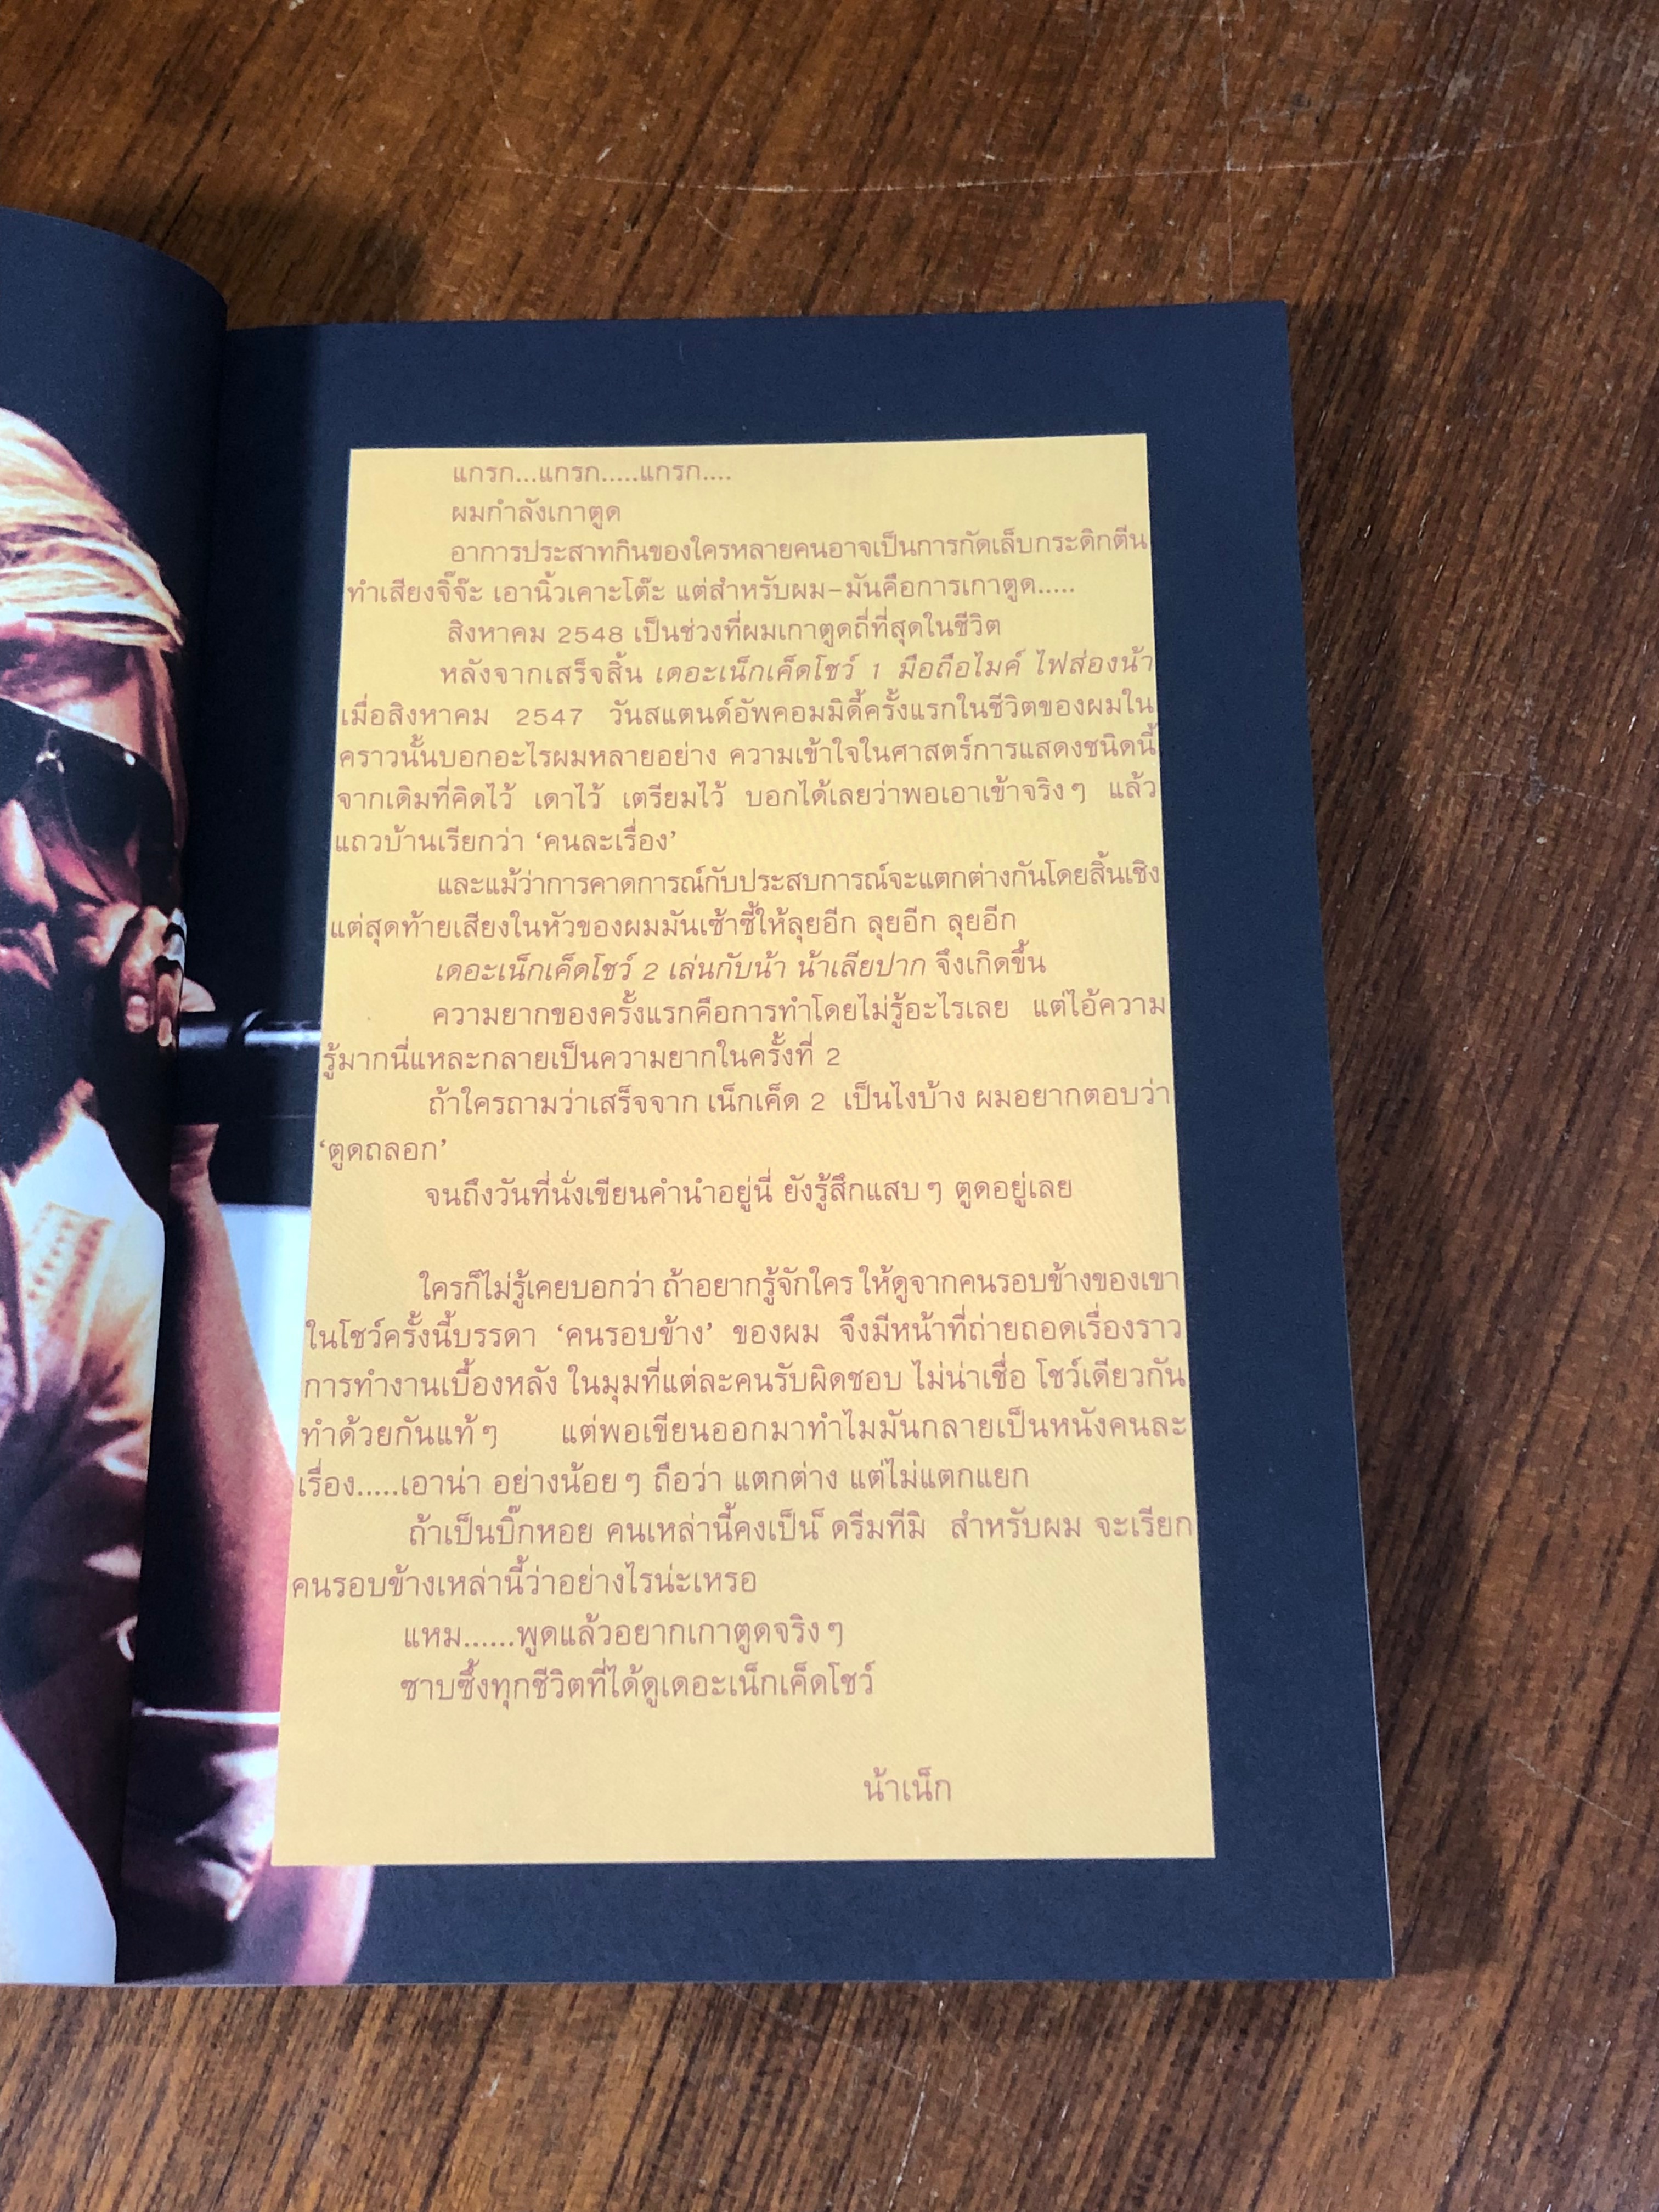 แกรก...แกรก.....แกรก....
ผมกำลังเกาตูด
อาการประสาทกินของใครหลายคนอาจเป็นการกัดเล็บกระดิกตีน
ทำเสียงจิ๊จ๊ะ เอานิ้วเคาะโต๊ะ แต่สำหรับผม-มันคือการเกาตูด.....
สิงหาคม 2548 เป็นช่วงที่ผมเกาตูดถี่ที่สุดในชีวิต
หลังจากเสร็จสิ้น เดอะเน็กเค็ดโชว์ 1 มือถือไมค์ ไฟส่องน้า
เมื่อสิงหาคม 2547 วันสแตนด์อัพคอมมิดี้ครั้งแรกในชีวิตของผมใน
คราวนั้นบอกอะไรผมหลายอย่าง ความเข้าใจในศาสตร์การแสดงชนิดนี้
จากเดิมที่คิดไว้ เดาไว้ เตรียมไว้ บอกได้เลยว่าพอเอาเข้าจริงๆ แล้ว
แถวบ้านเรียกว่า ‘คนละเรื่อง’
และแม้ว่าการคาดการณ์กับประสบการณ์จะแตกต่างกันโดยสิ้นเชิง
แต่สุดท้ายเสียงในหัวของผมมันเซ้าซี้ให้ลุยอีก ลุยอีก ลุยอีก
เดอะเน็กเค็ดโชว์ 2 เล่นกับน้า น้าเลียปาก จึงเกิดขึ้น
ความยากของครั้งแรกคือการทำโดยไม่รู้อะไรเลย แต่ไอ้ความ
รู้มากนี่แหละกลายเป็นความยากในครั้งที่ 2
ถ้าใครถามว่าเสร็จจาก เน็กเค็ด 2 เป็นไงบ้าง ผมอยากตอบว่า
‘ตูดถลอก’
จนถึงวันที่นั่งเขียนคำนำอยู่นี่ ยังรู้สึกแสบๆ ตูดอยู่เลย
ใครก็ไม่รู้เคยบอกว่า ถ้าอยากรู้จักใคร ให้ดูจากคนรอบข้างของเขา
ในโชว์ครั้งนี้บรรดา ‘คนรอบข้าง’ ของผม จึงมีหน้าที่ถ่ายถอดเรื่องราว
การทำงานเบื้องหลัง ในมุมที่แต่ละคนรับผิดชอบ ไม่น่าเชื่อ โชว์เดียวกัน
ทำด้วยกันแท้ๆ แต่พอเขียนออกมาทำไมมันกลายเป็นหนังคนละ
เรื่อง.....เอาน่า อย่างน้อยๆ ถือว่า แตกต่าง แต่ไม่แตกแยก
ถ้าเป็นบิ๊กหอย คนเหล่านี้คงเป็น ็ดรีมทีมิ สำหรับผม จะเรียก
คนรอบข้างเหล่านี้ว่าอย่างไรน่ะเหรอ
แหม......พูดแล้วอยากเกาตูดจริงๆ
ซาบซึ้งทุกชีวิตที่ได้ดูเดอะเน็กเค็ดโชว์
น้าเน็ก